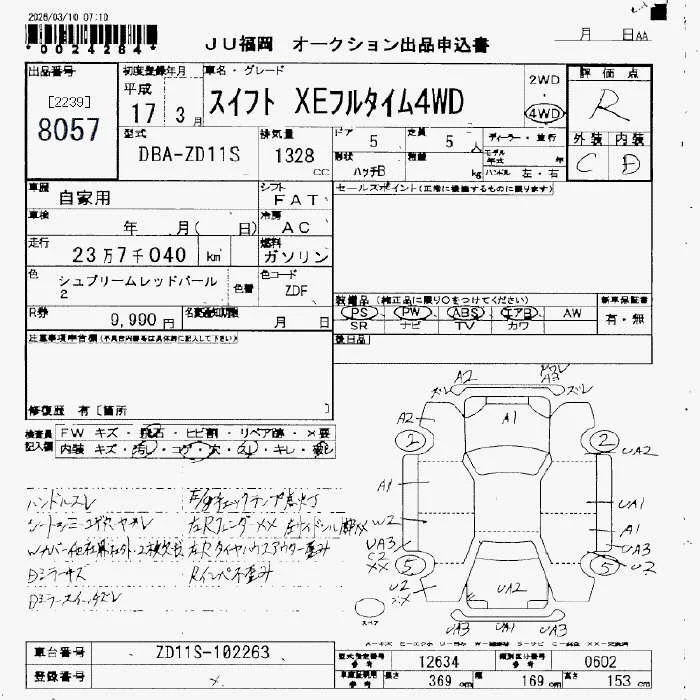 2026/03/10 07:10
*0024284*
JU福岡 オークション出品申込書
月 日AA
出品番号
[2239]
8057
初度登録年月
平成
17 3月
車名・グレード
スイフト XEフルタイム4WD
2WD
・
4WD
評価点
R
外装 内装
C D
型式
DBA-ZD11S
排気量
1328
cc
ドア
5
定員
5
人
形状
ハッチB
積載
kg
ディーラー・並行
モデル
年式 年
ハンドル 左・右
車歴
自家用
シフト
FAT
車検
年 月( 日)
冷房
AC
走行
23万7千040 km
燃料
ガソリン
色
シュプリームレッドパール
2
色替
色コード
ZDF
R券
9,990 円
名変通知期限
月 日
セールスポイント(正常に機能するものに限ります)
装備品 (純正品に限り○をつけてください)
PS PW ABS エアB AW
SR ナビ TV カワ
新車保証書
有・無
後日品
注意事項申告欄(不具合内容等は具体的に記入して下さい)
修復歴 有[箇所 ]
検査員
記入欄
FW キズ・飛石・ヒビ割・リペア跡・×要
内装 キズ・汚レ・コゲ・穴・スレ・キレ・
ハンドルスレ
Dミラーキズ
E/gチェックランプ点灯
左Rフェンダ XX
左Rタイヤハウスアウター歪み
Rインパネ歪み
A2
A3
ズレ
ズレ
A2
A1
2
2
UA2
A1
UA1
W2
A1
UA3
C2
XX
UA3
5
5
U2
U2
XX
UA2
UA3 UA1 UA3
スペア
車台番号
ZD11S-102263
登録番号
型式指定番号
参考
12634
類別区分番号
参考
0602
車庫証明用
参考
長さ
369 cm
幅
169 cm
高さ
153 cm